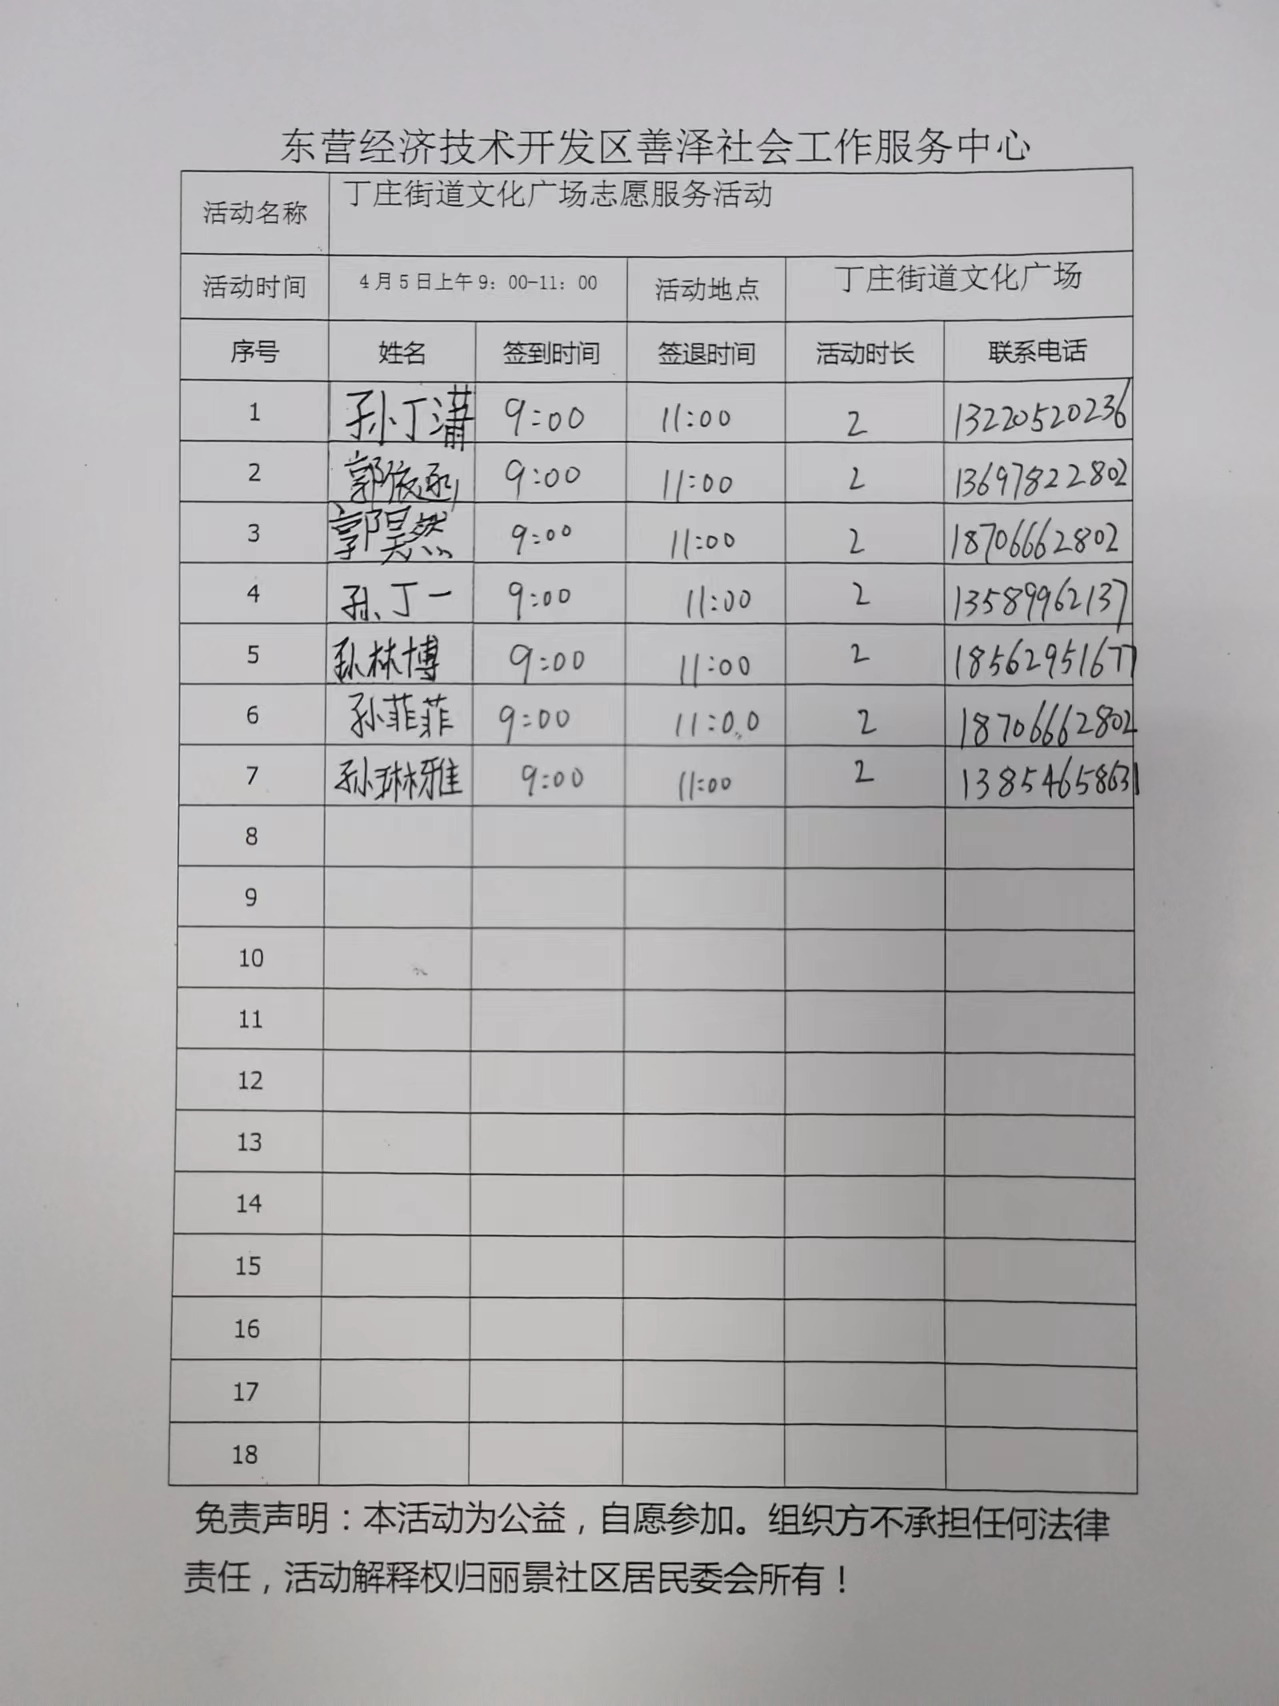 东营经济技术开发区善泽社会工作服务中心
活动名称 丁庄街道文化广场志愿服务活动
活动时间 4月5日上午9：00-11：00 活动地点 丁庄街道文化广场
序号 姓名 签到时间 签退时间 活动时长 联系电话
1 孙丁潇 9:00 11:00 2 13220520236
2 郭依函 9:00 11:00 2 13697822802
3 郭昊然 9:00 11:00 2 18706662802
4 孙丁一 9:00 11:00 2 13589962137
5 孙林博 9:00 11:00 2 18562951677
6 孙菲菲 9:00 11:00 2 18706662802
7 孙琳雅 9:00 11:00 2 13854658631
8
9
10
11
12
13
14
15
16
17
18
免责声明：本活动为公益，自愿参加。组织方不承担任何法律
责任，活动解释权归丽景社区居民委会所有！